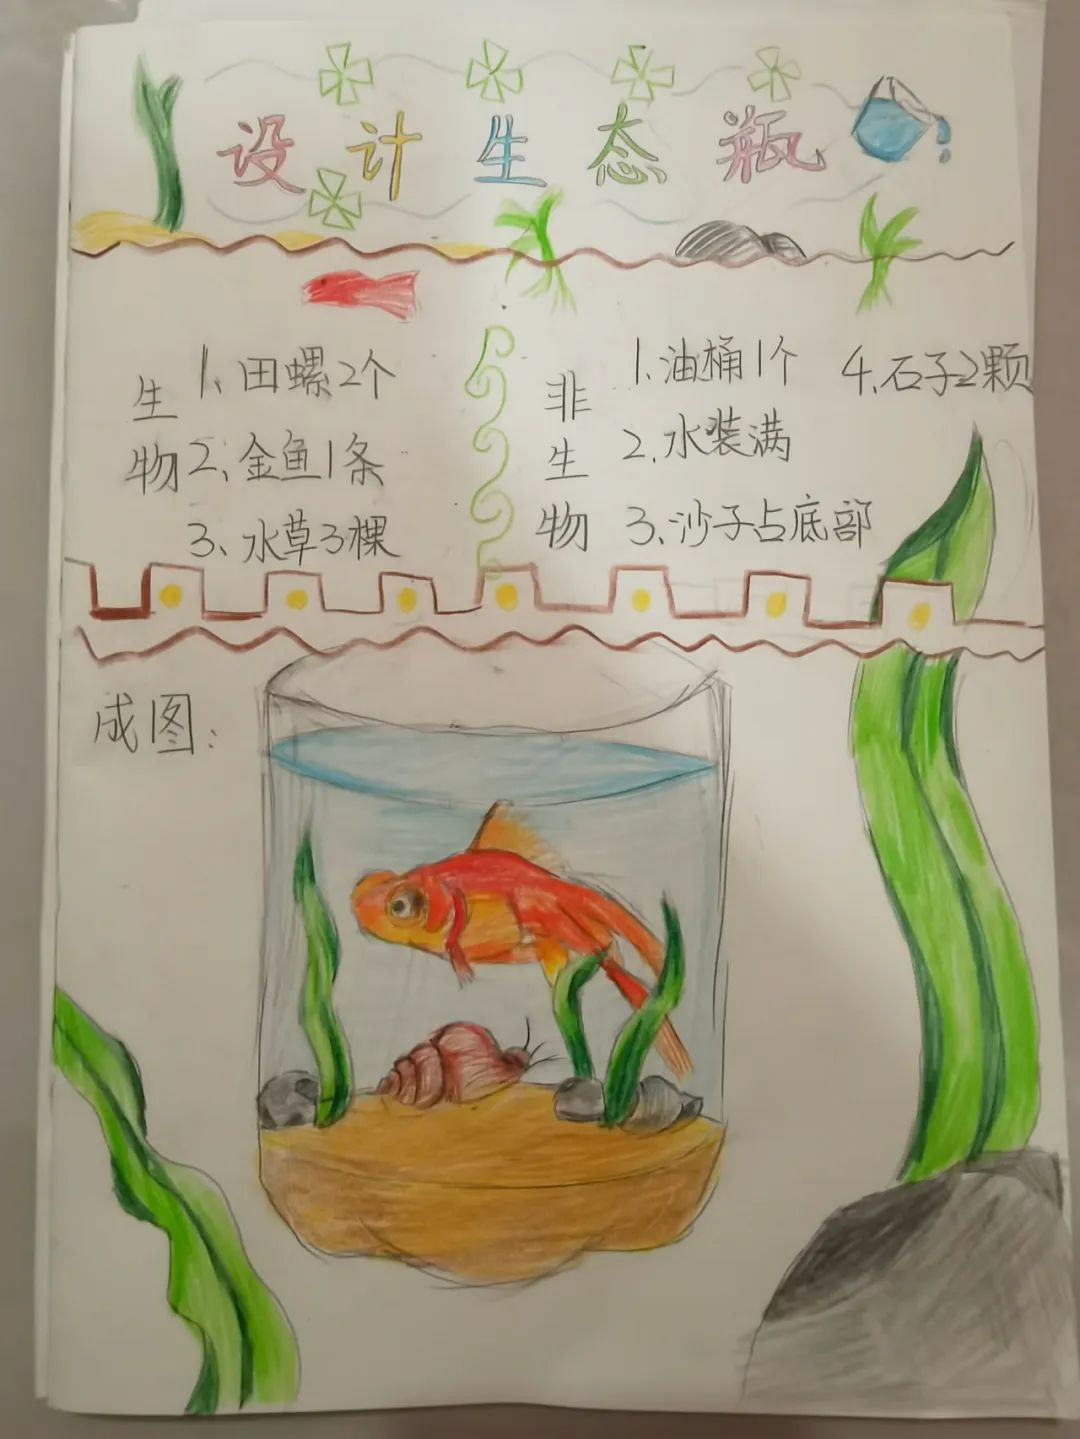 设计生态瓶
生物
1、田螺2个
2、金鱼1条
3、水草3棵
非生物
1.油桶1个
2.水装满
3.沙子占底部
4.石子2颗
成图：